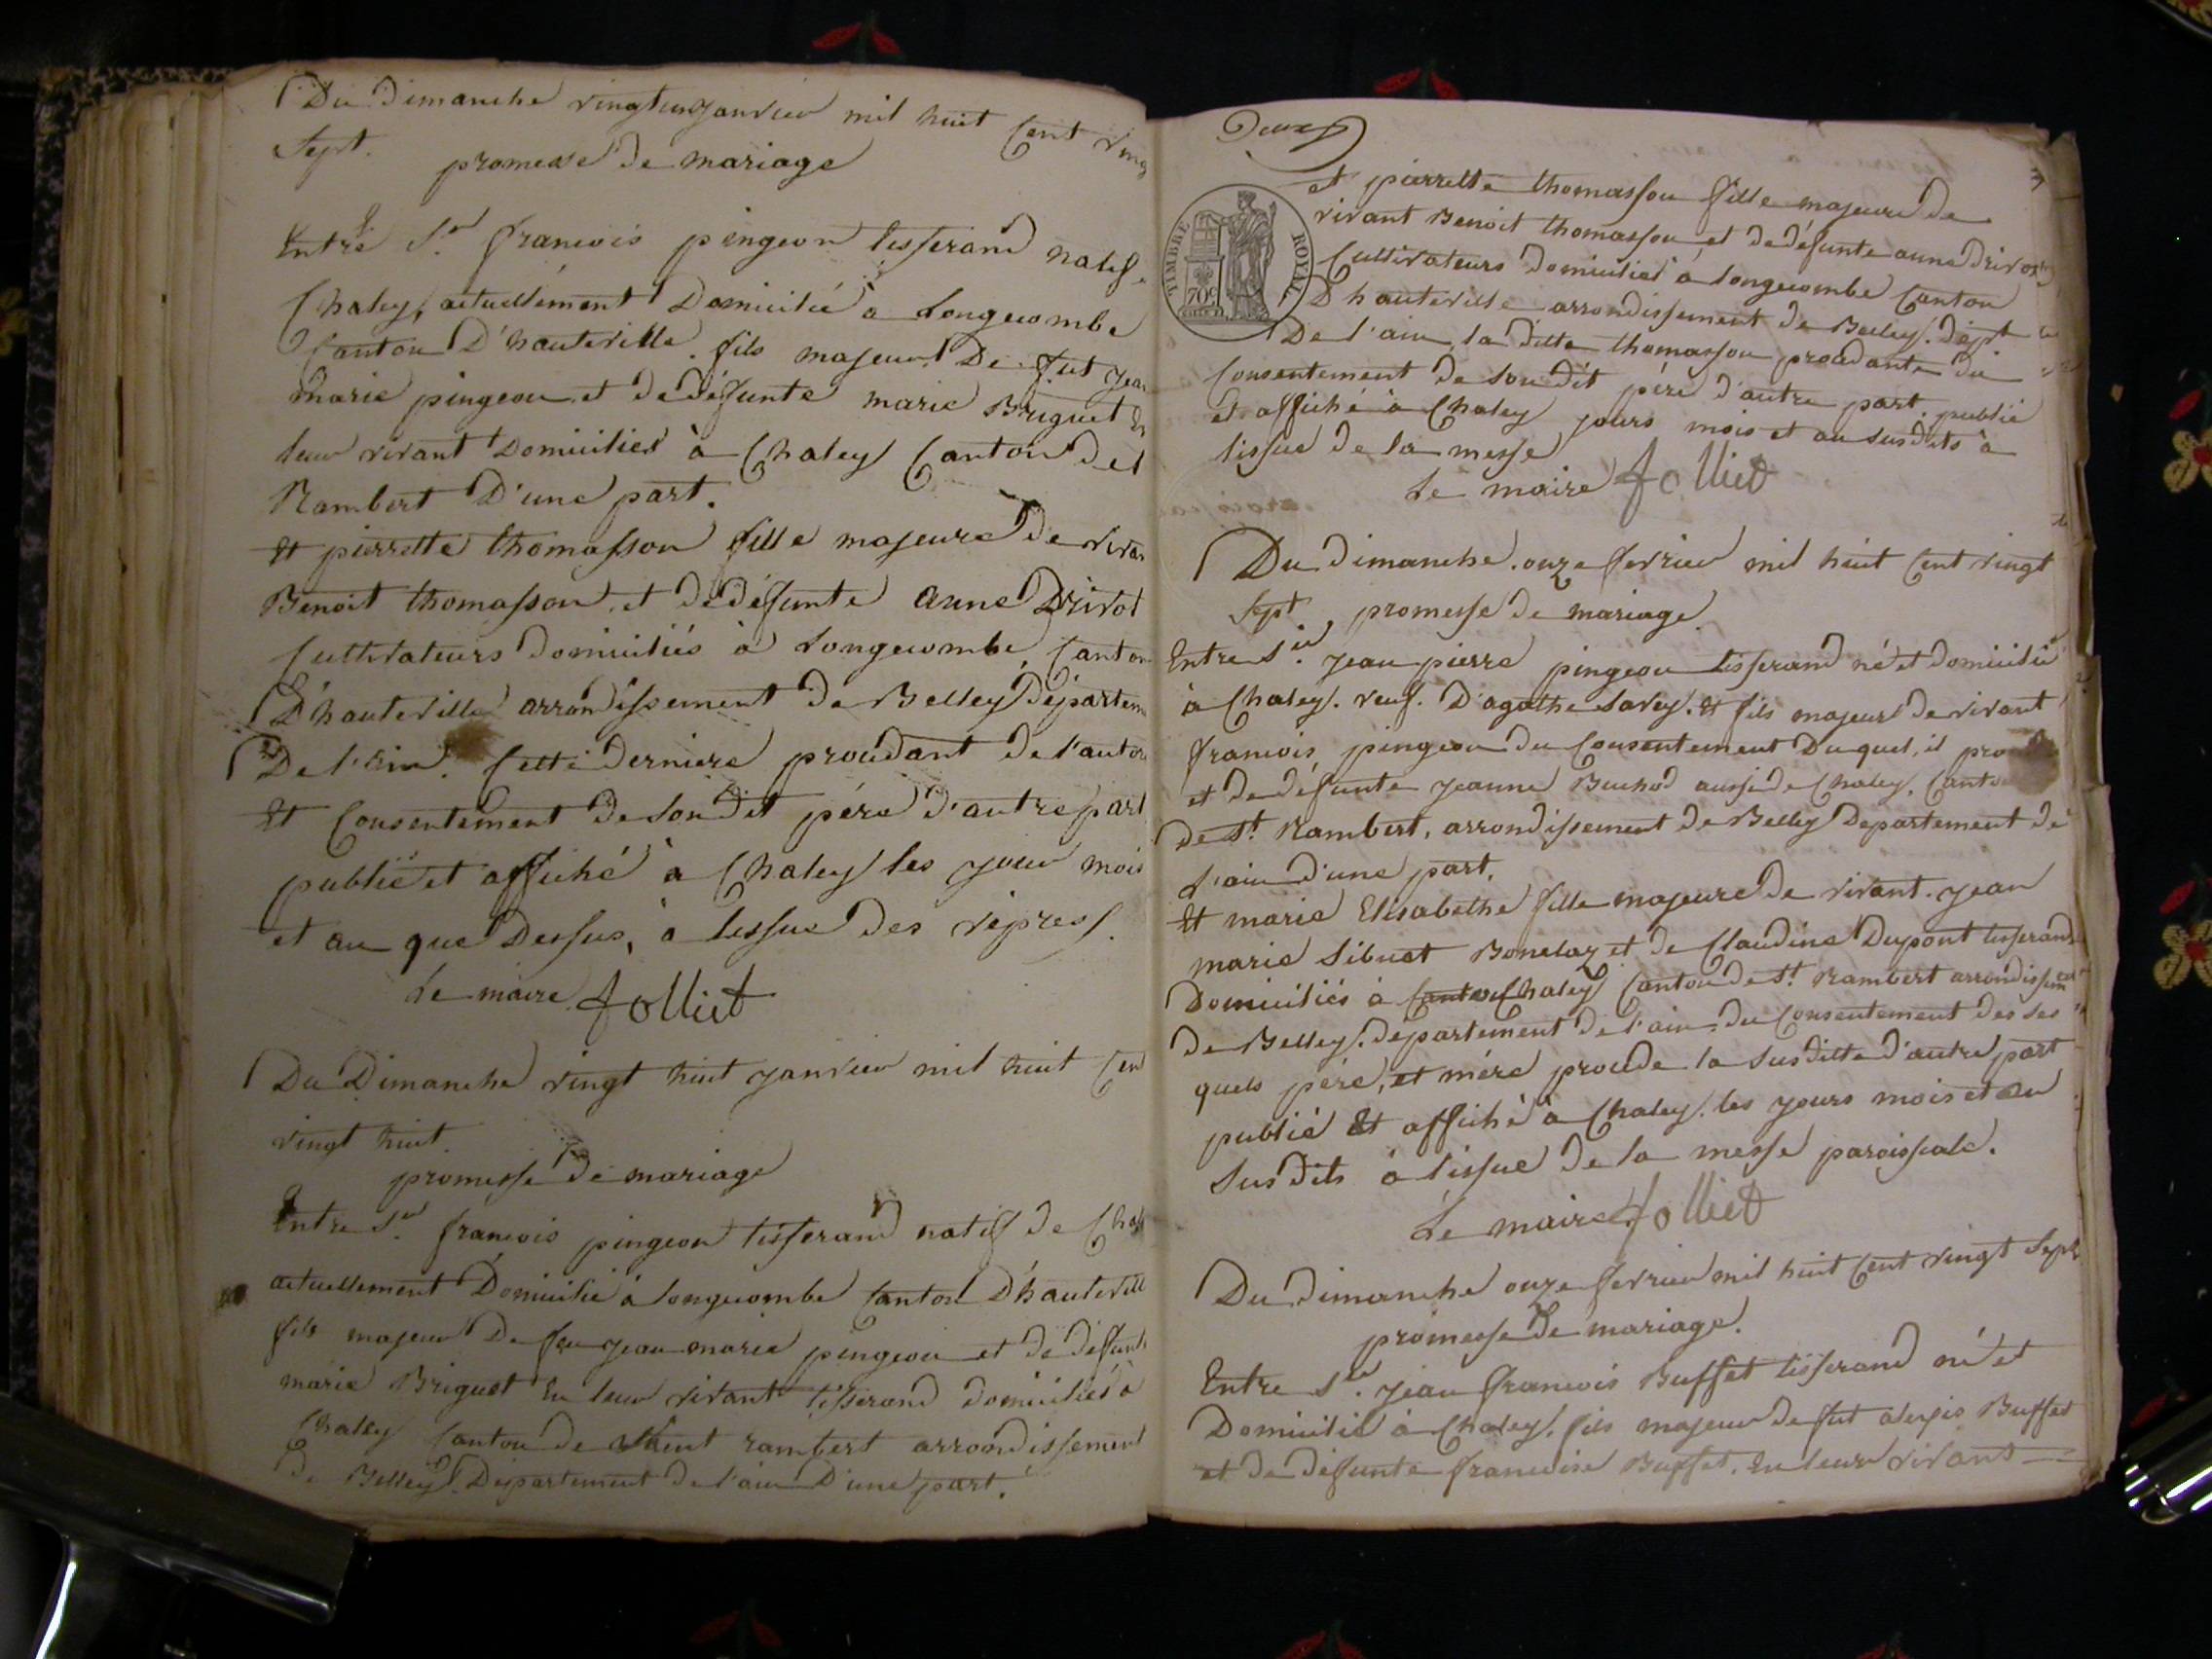 Du Dimanche vingt un janvier mil huit Cent ving
Sept.
promesse de mariage
Entre Sr. francois pingeon tisserand natif
Chaley, actuellement Domicilié à Longecombe
Canton D'hauteville. fils majeur De fut jean
marie pingeon et de défunte marie Briguet En
leur vivant Domiciliés à Chaley Canton de st
Rambert D'une part.
Et pierrette thomasson fille majeure de vivan
Benoit thomasson et de défunte anne Drivot
Cultivateurs domiciliés à Longecombe Canton
D'hauteville arrondissement de Belley départem
De l'ain. Cette derniere procédant de l'autor
Et Consentement de son dit pére d'autre part
publié et affiché à Chaley les jour mois
et an que Dessus, à lessue des vepres.
Le maire Jolliet
Du Dimanche vingt huit janvier mil huit Cen
vingt huit.
promesse de mariage
Entre Sr. francois pingeon tisserand natif de Chal
actuellement Domicilié à longecombe Canton D'hautevill
fils majeur De feu jean marie pingeon et de défunt
marie Briguet En leur vivant tisserand domiciliés à
Chaley Canton de saint rambert arrondissement
de Belley Département de l'ain D'une part.
Deux
TIMBRE ROYAL
70c
et pierrette thomasson fille majeure de
vivant Benoit thomasson et de défunte anne Drivot
Cultivateurs domiciliés à longecombe Canton
D'hauteville arrondissement de Belley. dépt
De l'ain, la ditte thomasson procédante du
Consentement de son dit pére d'autre part. publié
et affiché à Chaley jours mois et an susdits à
lissue de la messe
Le maire Jolliet
Du dimanche onze fevrier mil huit Cent vingt
Sept, promesse de mariage
Entre Sr. jean pierre pingeon tisserand né et domicilié
à Chaley. veuf. D'agathe Savey. Et fils majeur de vivant
francois pingeon du Consentement Duquel, il pro
et de défunte jeanne Buchod aussi de Chaley, Canto
de St. Rambert, arrondissement de Belley Departement de
L'ain d'une part.
Et marie Elisabethe fille majeure de vivant. jean
marie Sibuet Bonelaz et de Claudine Dupont tisserand
Domiciliés à Canton Chaley Canton de St. Rambert arrondissem
de Belley. département de l'ain du Consentement des les
quels pére, et mére procéde la susditte d'autre part
publié Et affiché à Chaley. les jours mois et an
susdits à l'issue de la messe paroissiale.
Le maire Jolliet
Du dimanche onze fevrier mil huit Cent vingt Sept
promesse de mariage.
Entre Sr. jean francois Buffet tisserand né et
Domicilié à Chaley. fils majeur de fut alexis Buffet
et de défunte francoise Buffet. En leur vivant